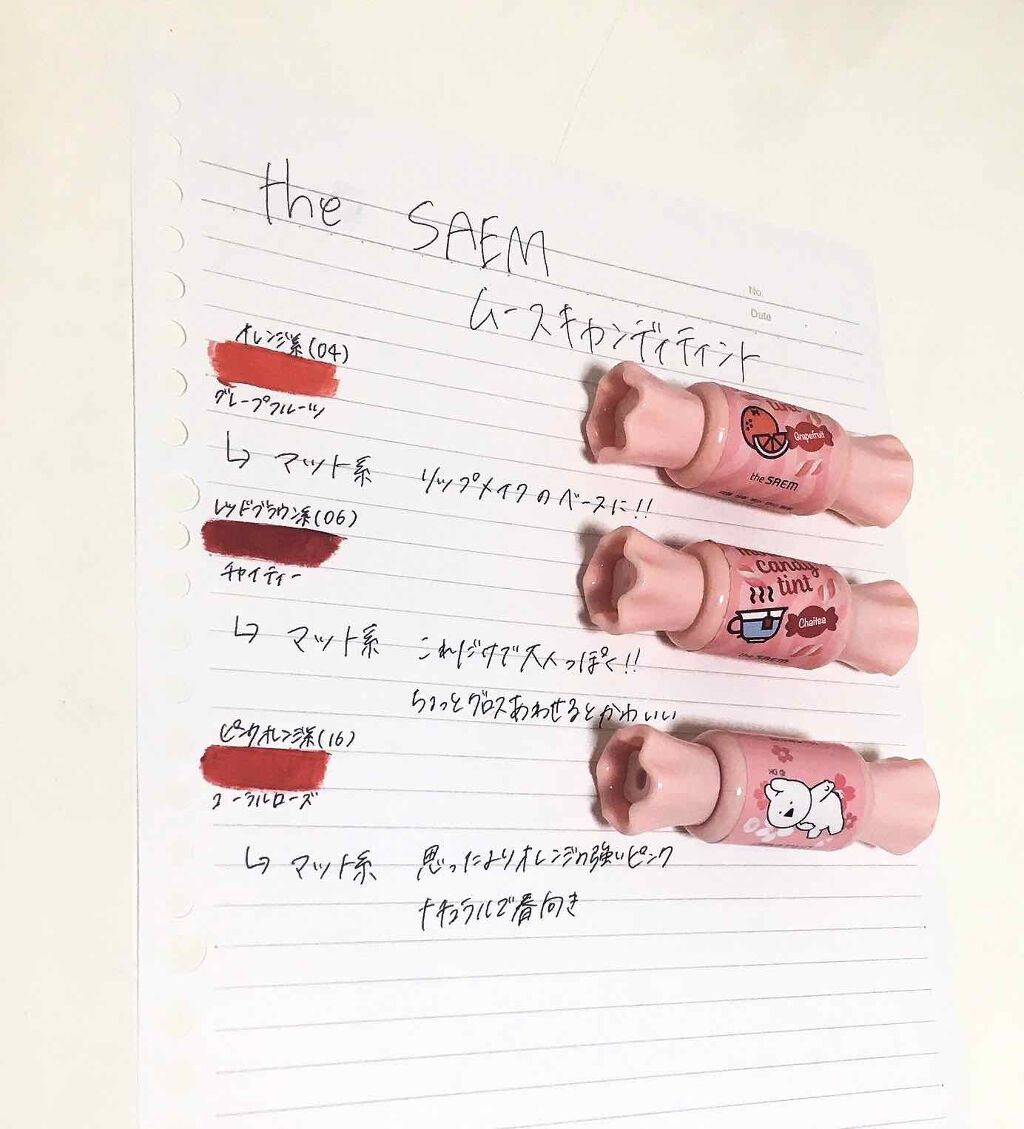 the SAEM
ムースキャンディティント
No.
Date
オレンジ系(04)
グレープフルーツ
↳ マット系 リップメイクのベースに!!
レッドブラウン系(06)
チャイティー
↳ マット系 これだけで大人っぽく!!
ちょっとグロスあわせるとかわいい
ピンクオレンジ系(16)
コーラルローズ
↳ マット系 思ったよりオレンジの強いピンク
ナチュラルで春向き
tint
Grapefruit
the SAEM
candy
tint
Chaitea
the SAEM